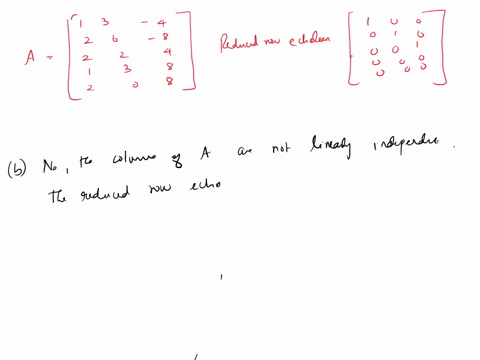 A = [ 1 3 -4
2 0 -8
2 2 4
1 3 8
2 0 8 ]
Reduced row echelon
[ 1 0 0
0 1 0
0 0 1
0 0 0
0 0 0 ]
(b) No, the columns of A are not linearly independent.
The reduced row echo